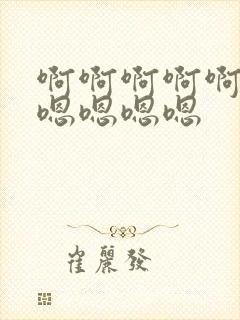 啊啊啊啊啊
嗯嗯嗯嗯
崔麗發